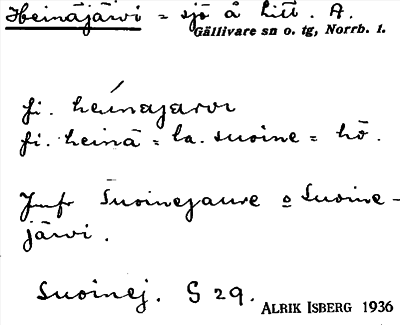 Heinäjärvi = sjö å bitt. A.
Gällivare sn o. tg, Norrb. l.
fi. heinäjärvi
fi. heinä = la. suoine = hö.
Jmfr Suoinejaure o Suoine-
järvi.
Suoinej. S 29.
ALRIK ISBERG 1936